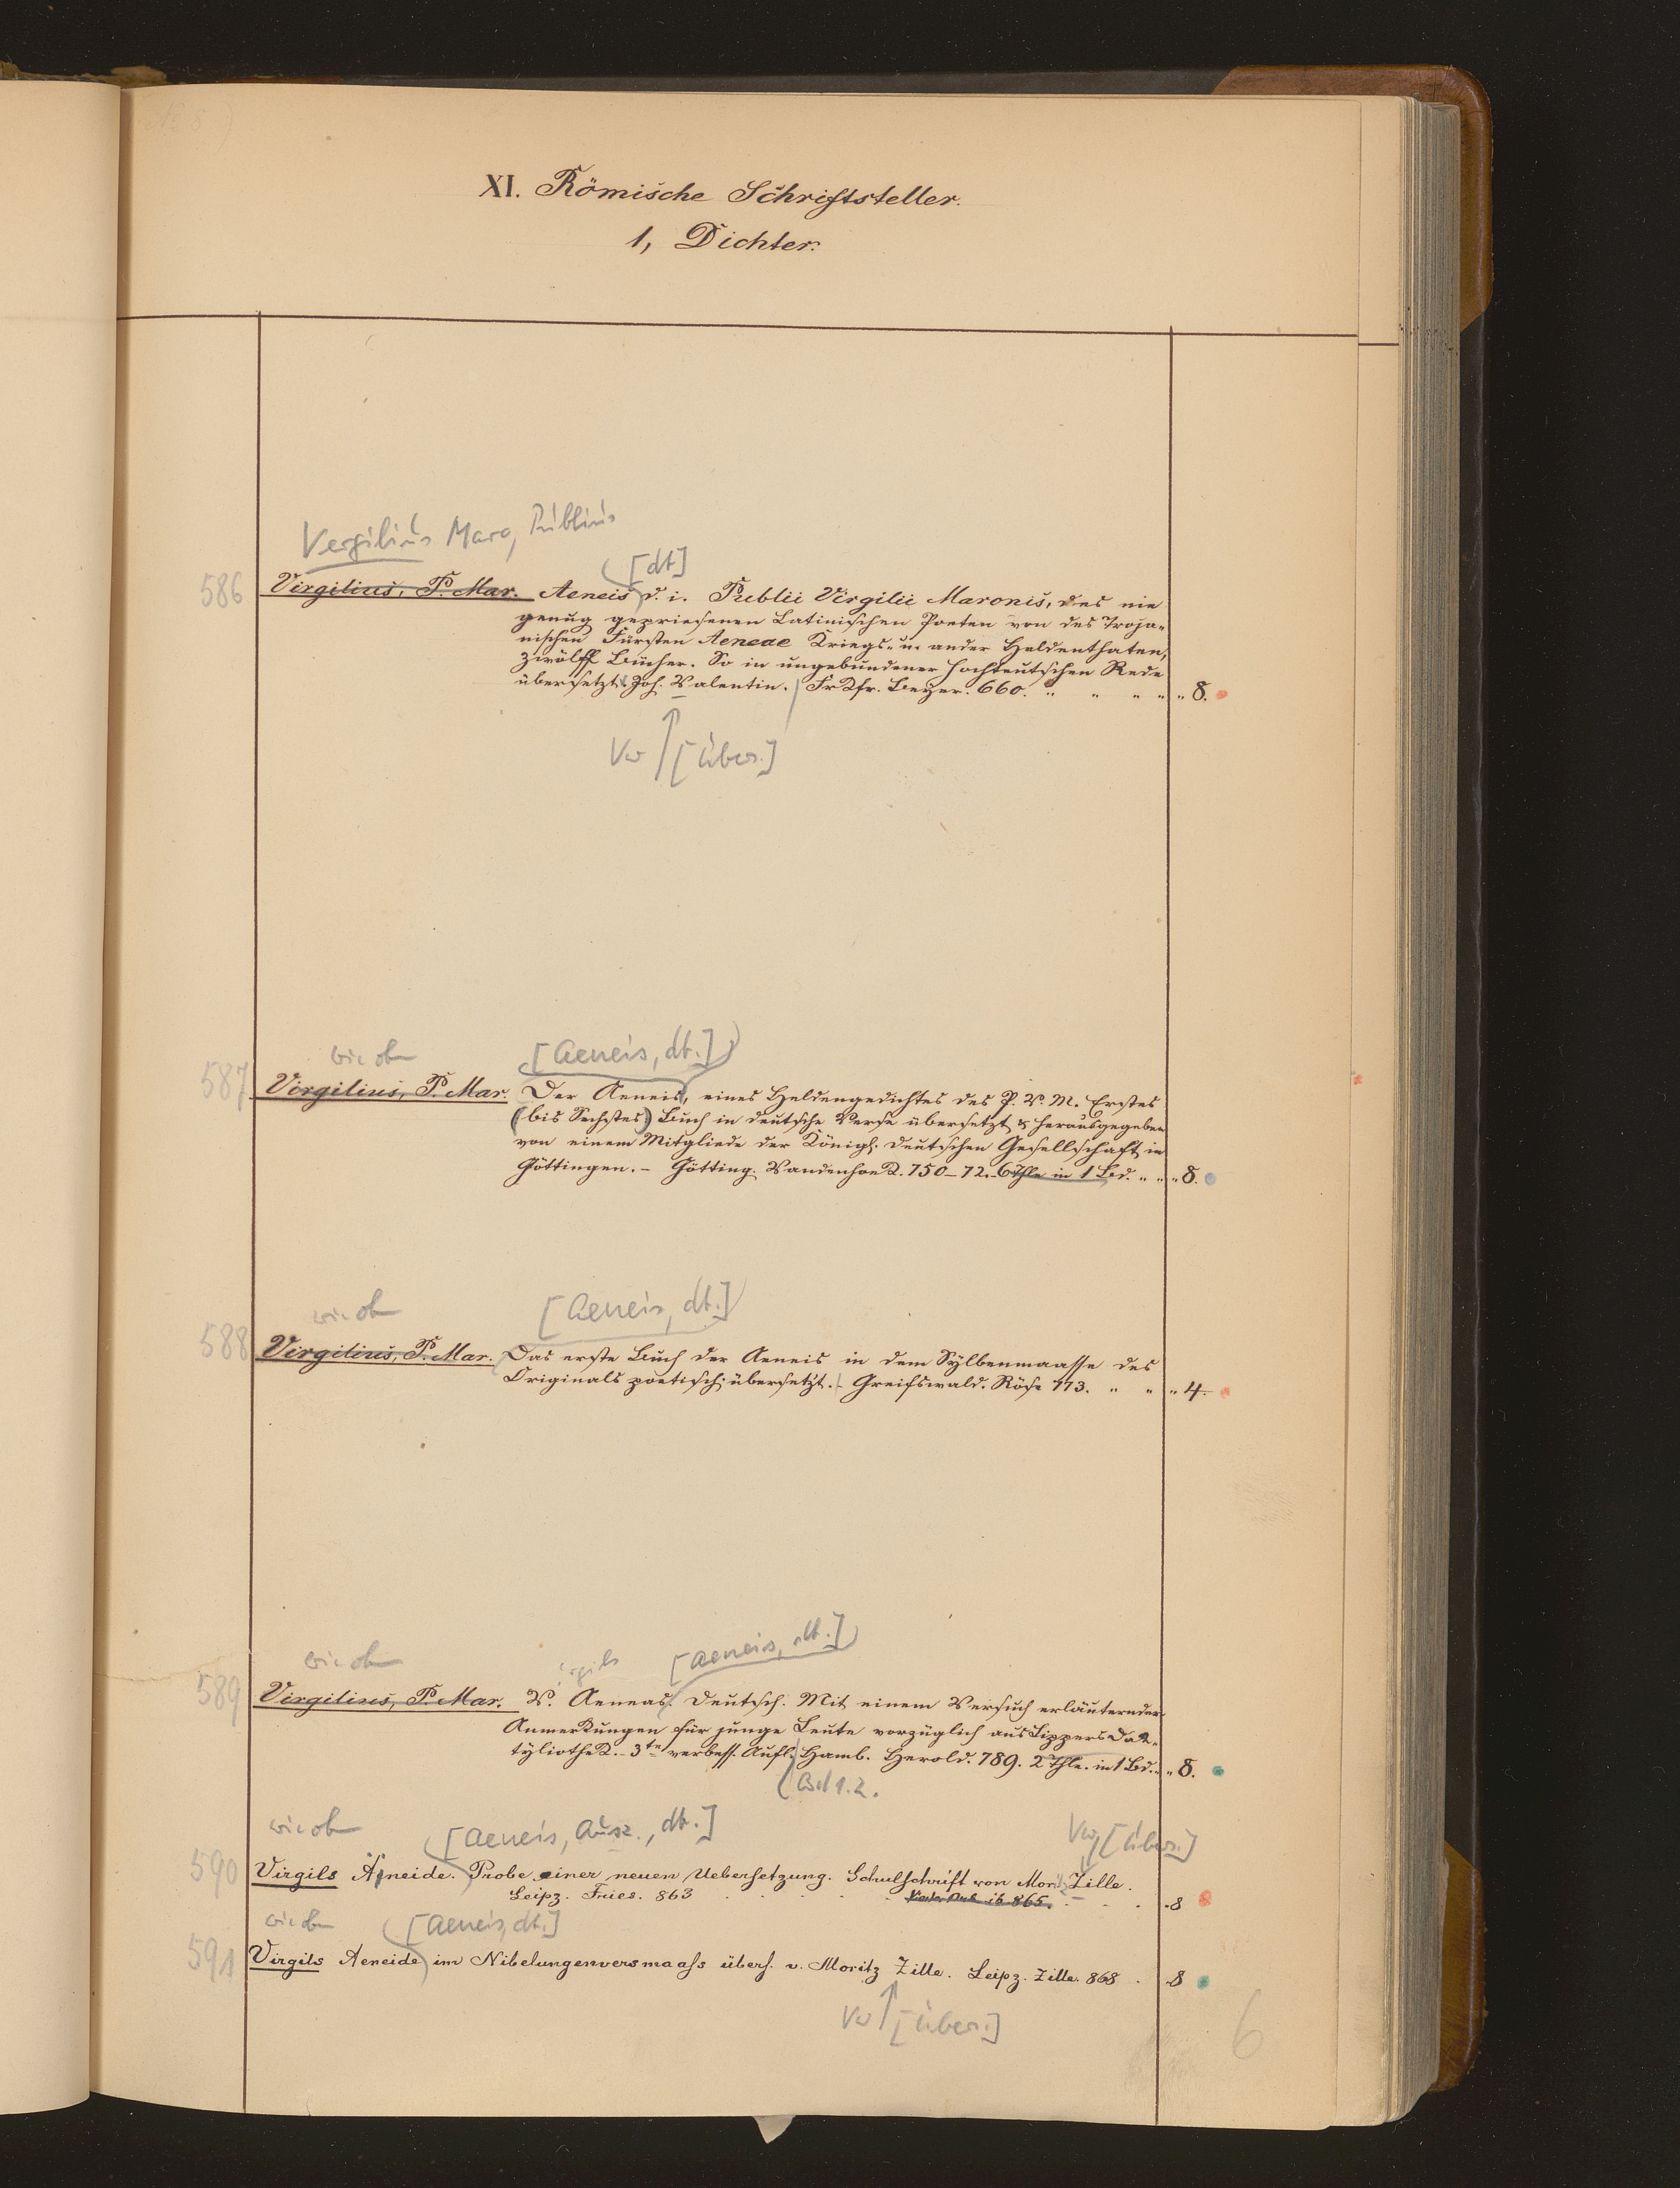 XI. Römische Schriftsteller.
1, Dichter.
Vergilius Maro, Publius
[dt]
586 Virgilius, P. Mar. Aeneis d. i. Publii Virgilii Maronis, des nie
genug gepriesenen Latinischen Poeten von des Troja-
nischen Fürsten Aeneae Kriegs- u. ander Heldenthaten,
zwölff Bücher. So in ungebundener hochteutschen Rede
übersetzt Joh. Valentin. Frkfr. Beyer. 660. " " " " " 8.
Vw [Übers.]
wie oben [Aeneis, dt.]
587 Virgilius, P. Mar. Der Aeneis, eines Heldengedichtes des P. V. M. Erstes
(bis Sechstes) Buch in deutsche Verse übersetzt & herausgegeben
von einem Mitgliede der Königl. deutschen Gesellschaft in
Göttingen. - Götting. Vandenhoek. 750-72. 6 Thle in 1 Bd. " " " 8.
wie oben [Aeneis, dt.]
588 Virgilius, P. Mar. Das erste Buch der Aeneis in dem Sylbenmaasse des
Originals poetisch übersetzt. - Greifswald. Röse 773. " " " 4.
wie oben irgils [Aeneis, dt.]
589 Virgilius, P. Mar. V. Aeneas. Deutsch. Mit einem Versuch erläuternder
Anmerkungen für junge Leute vorzüglich aus Lippers Dak-
tyliothek. - 3te verbess. Aufl. Hamb. Herold. 789. 2 Thle. in 1 Bd. " " 8.
Bd 1.2.
wie oben [Aeneis, Ausz., dt.] Vw [Übers.]
590 Virgils Aeneide. Probe einer neuen Uebersetzung. Schulschrift von Moritz Zille.
Leipz. Fries. 863 . . . . . 865. . . . 8
wie oben [Aeneis, dt.]
591 Virgils Aeneide im Nibelungenversmaass übers. v. Moritz Zille. Leipz. Zille. 868 . 8
Vw [Übers.]
6